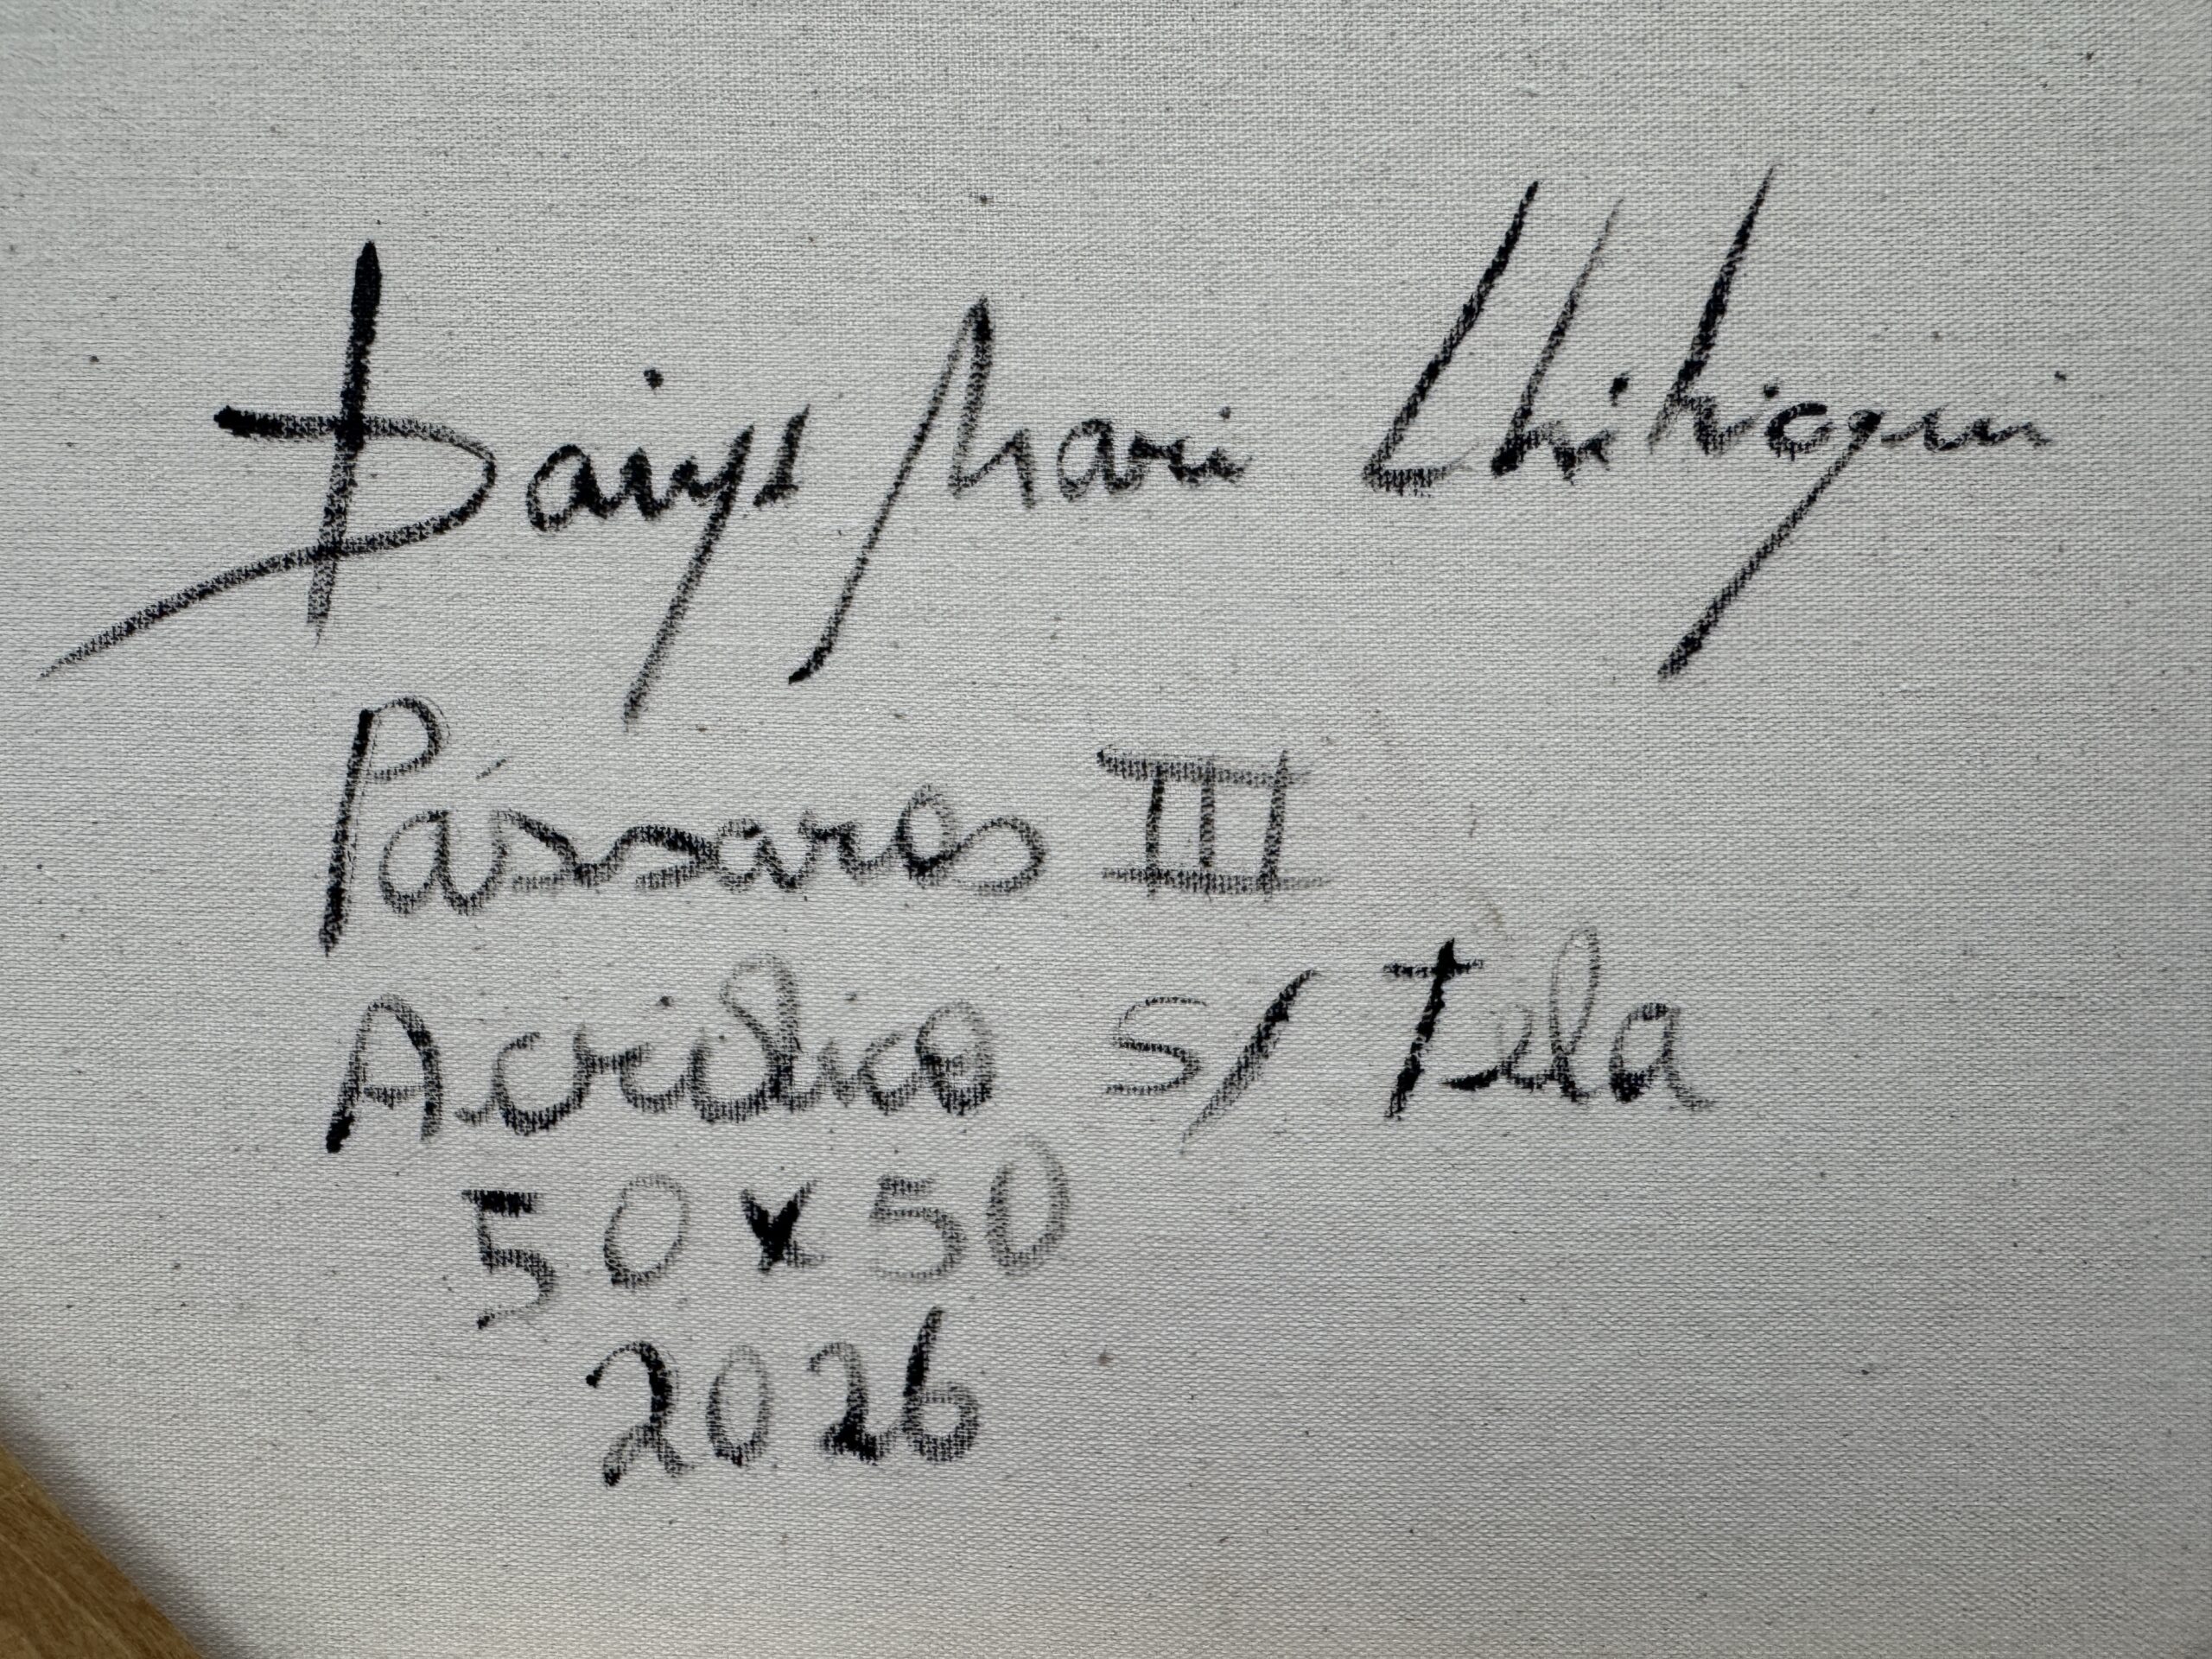 Dairys Mari
Pássaros III
Acrílico s/ Tela
50 x 50
2026